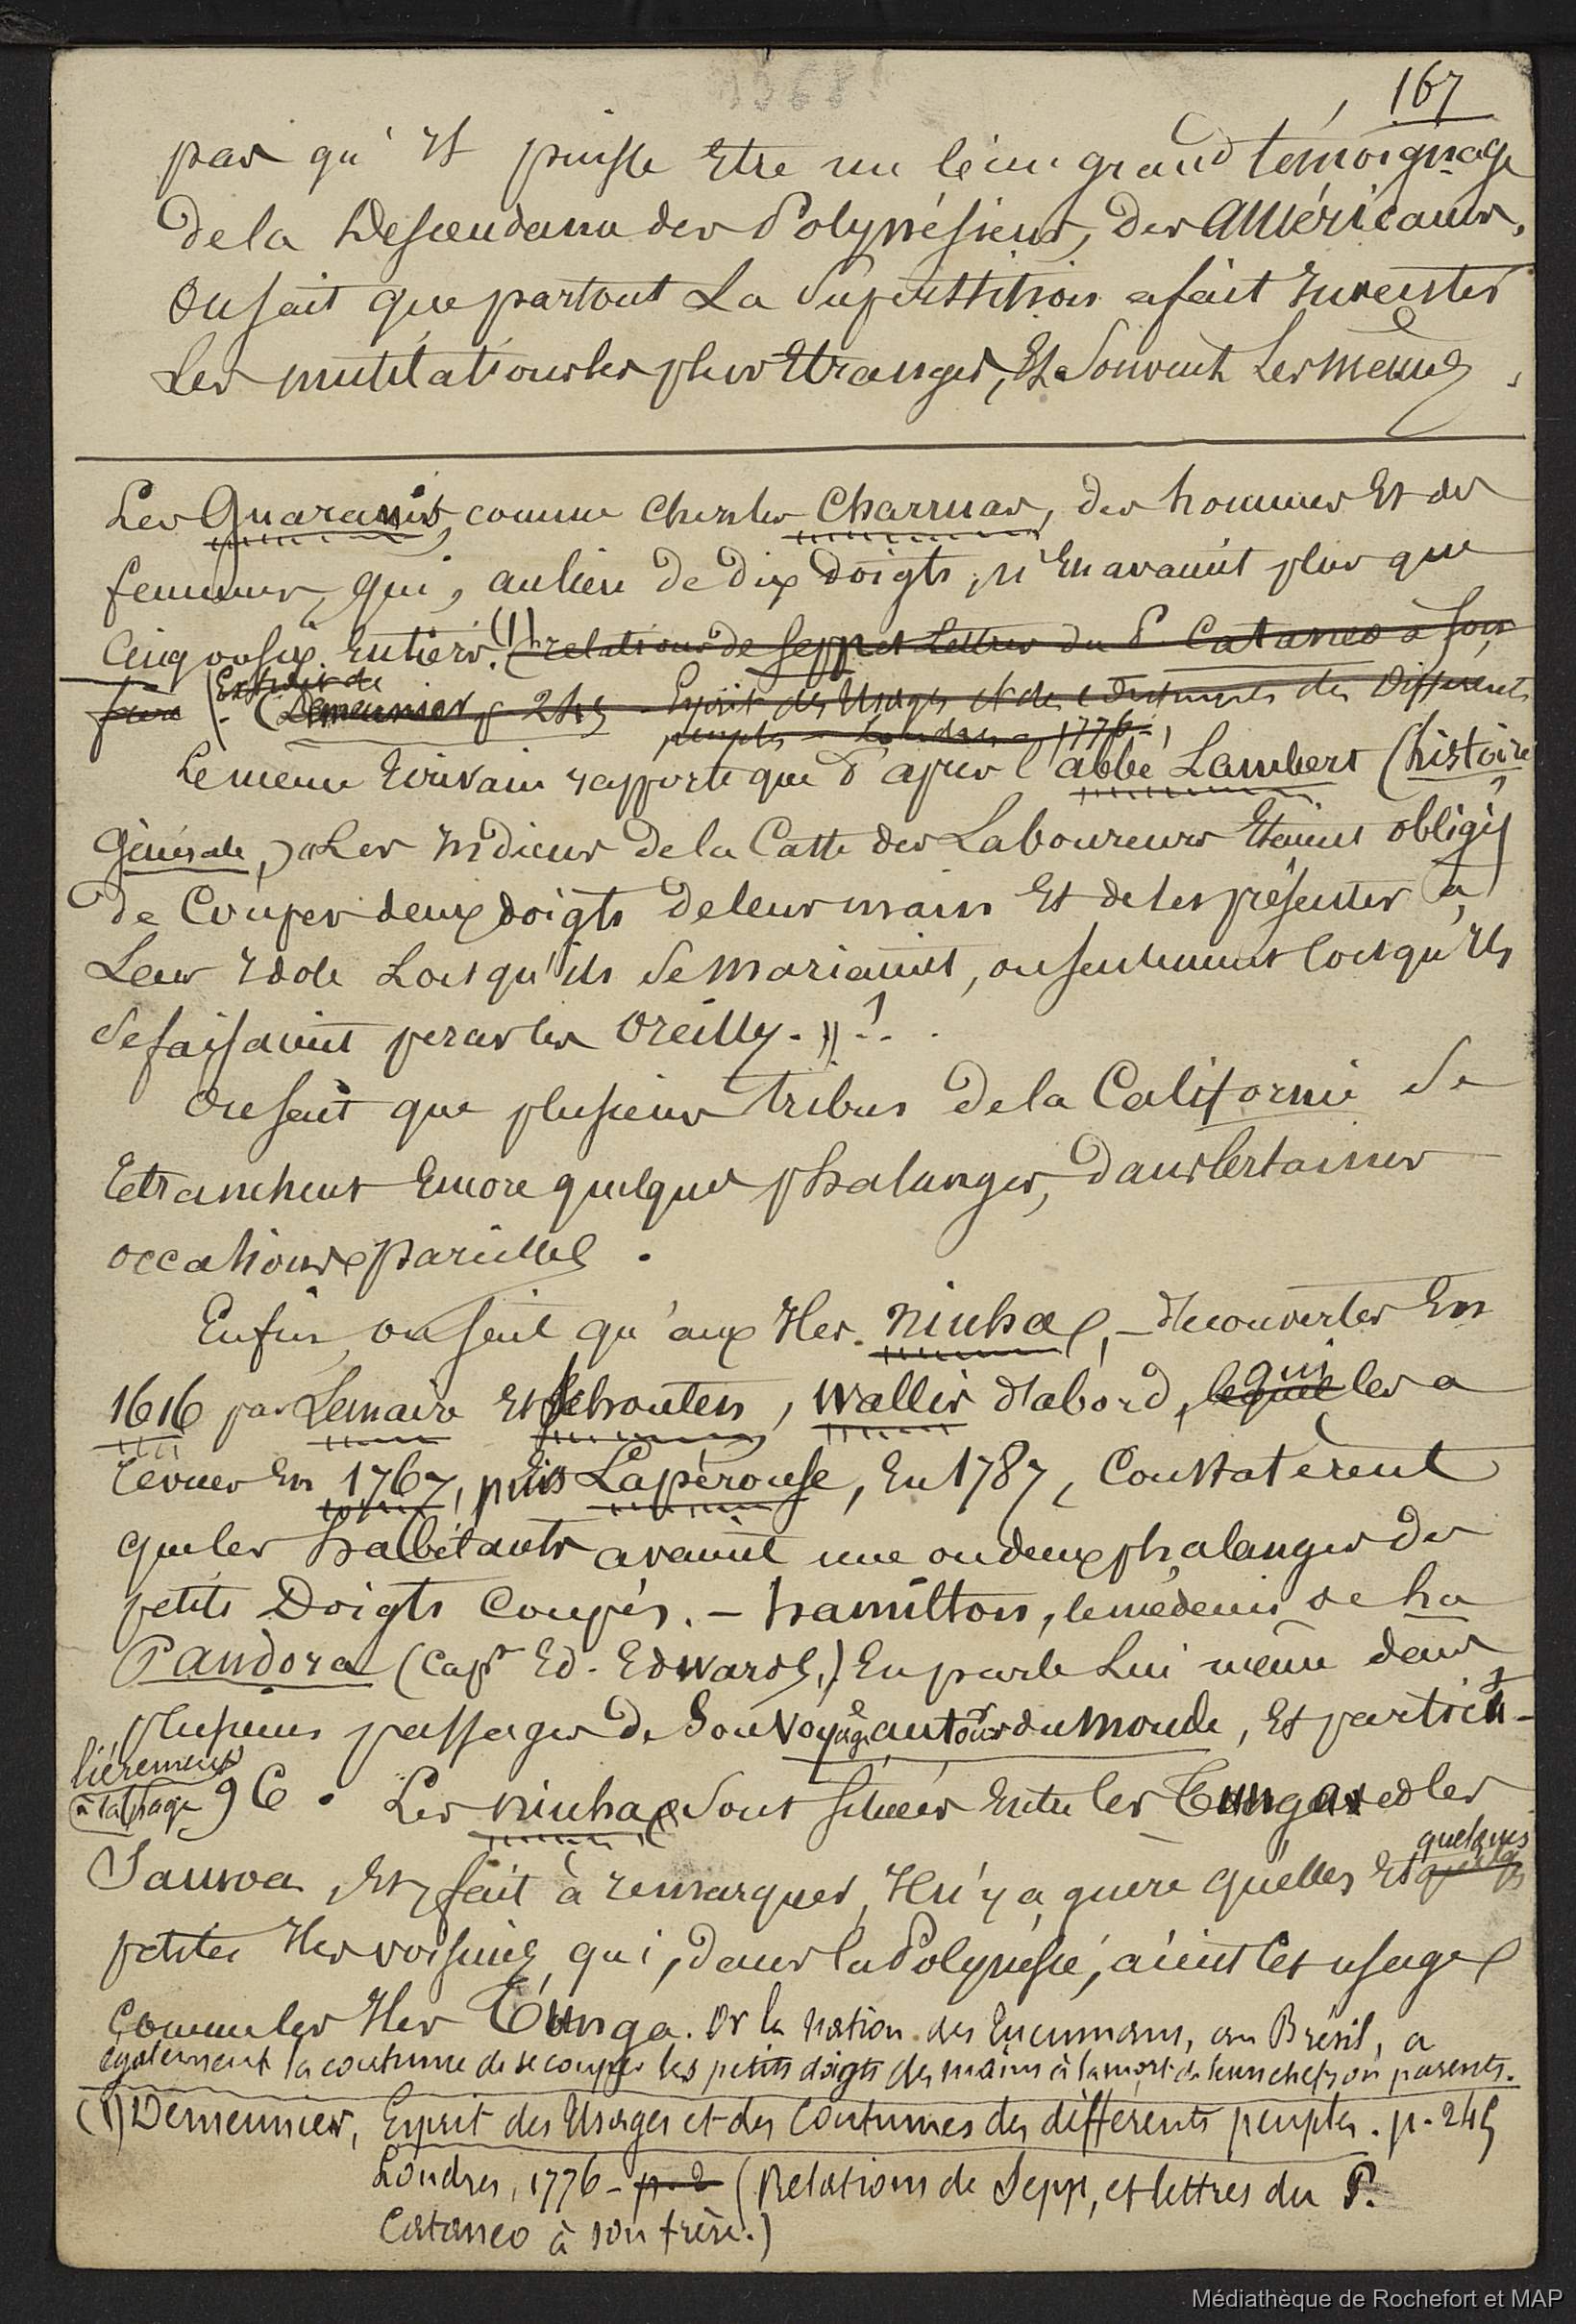 167
pas qu'il puisse Etre un bien grand témoignage
de la Descendance des Polynésiens, des Américains.
On sait que partout La Superstition a fait inventer
Les mutilations les plus Etranges, Et Souvent Les mêmes.
Les Guaranis, comme chez les Charruas, des hommes Et des
femmes, qui, au lieu de dix doigts, n'En avaient plus que
Cinq ou six Entiers. (1) (relations de Sepp et Lettres du P. Cataneo à son
frère (Extrait de Demeunier p 245 - Esprit des Usages et des Coutumes des Différents
peuples - Londres - 1776 -)
Le même Ecrivain rapporte que d'après l'abbé Lambert (histoire
Générale,) « Les Indiens de la Caste des Laboureurs Etaient obligés
de Couper deux doigts de leur main Et de les présenter à
Leur Idole Lorsqu'ils Se mariaient, ou seulement lorsqu'ils
Se faisaient percer les Oreilles. » !..
On sait que plusieurs tribus de la Californie Se
retranchent Encore quelques phalanges, dans Certaines
occations pareilles.
Enfin, on sait qu'aux Iles Niuha, - découvertes En
1616 par Lemaire Et Schouten, Wallis d'abord, lequel qui les a
revues En 1767, puis Lapérouse, En 1787, Constatèrent
que les habitants avaient une ou deux phalanges des
petits Doigts Coupés. - hamilton, le médecin de La
Pandora (Cap.ne Ed. Edwards,) En parle Lui même dans
plusieurs passages de Son Voyage autour du Monde, Et particu-
lièrement
à la page 96. Les Niuha Sont Situées Entre les Tunga et les
Samoa, Et, fait à remarquer, Il n'y a guère qu'elles Et quelques
petites Iles voisines, qui, dans la Polynésie, aient Cet usage
Comme les Iles Tunga. Or la nation des Tucumans, au Brésil, a
également la coutume de se couper les petits doigts des mains à la mort de leurs chefs ou parents.
(1) Demeunier, Esprit des Usages et des Coutumes des différents peuples. p. 245
Londres, 1776 - p. 2 (Relations de Sepp, et lettres du P.
Cataneo à son frère.)
Médiathèque de Rochefort et MAP